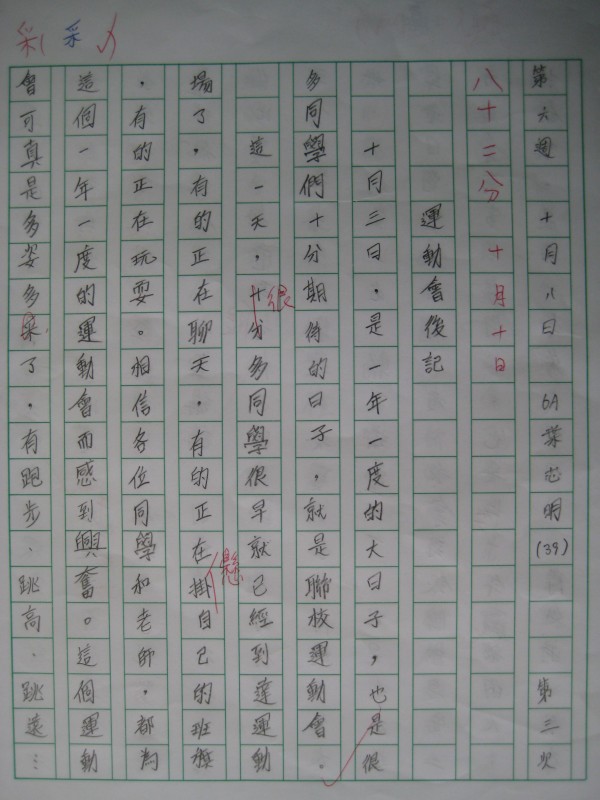 第六週 十月八日 6A 葉 明(39) 第三次
八十二分 十月十日
運動會後記
十月三日,是一年一度的大日子,也是很
多同學們十分期待的日子,就是聯校運動會。
很
這一天,十分多同學很早就已經到達運動
懸
場了,有的正在聊天,有的正在掛自己的班旗
,有的正在玩耍。相信各位同學和老師,都為
這個一年一度的運動會而感到興奮。這個運動
會可真是多姿多采了。有跑步、跳高、跳遠…
彩 采